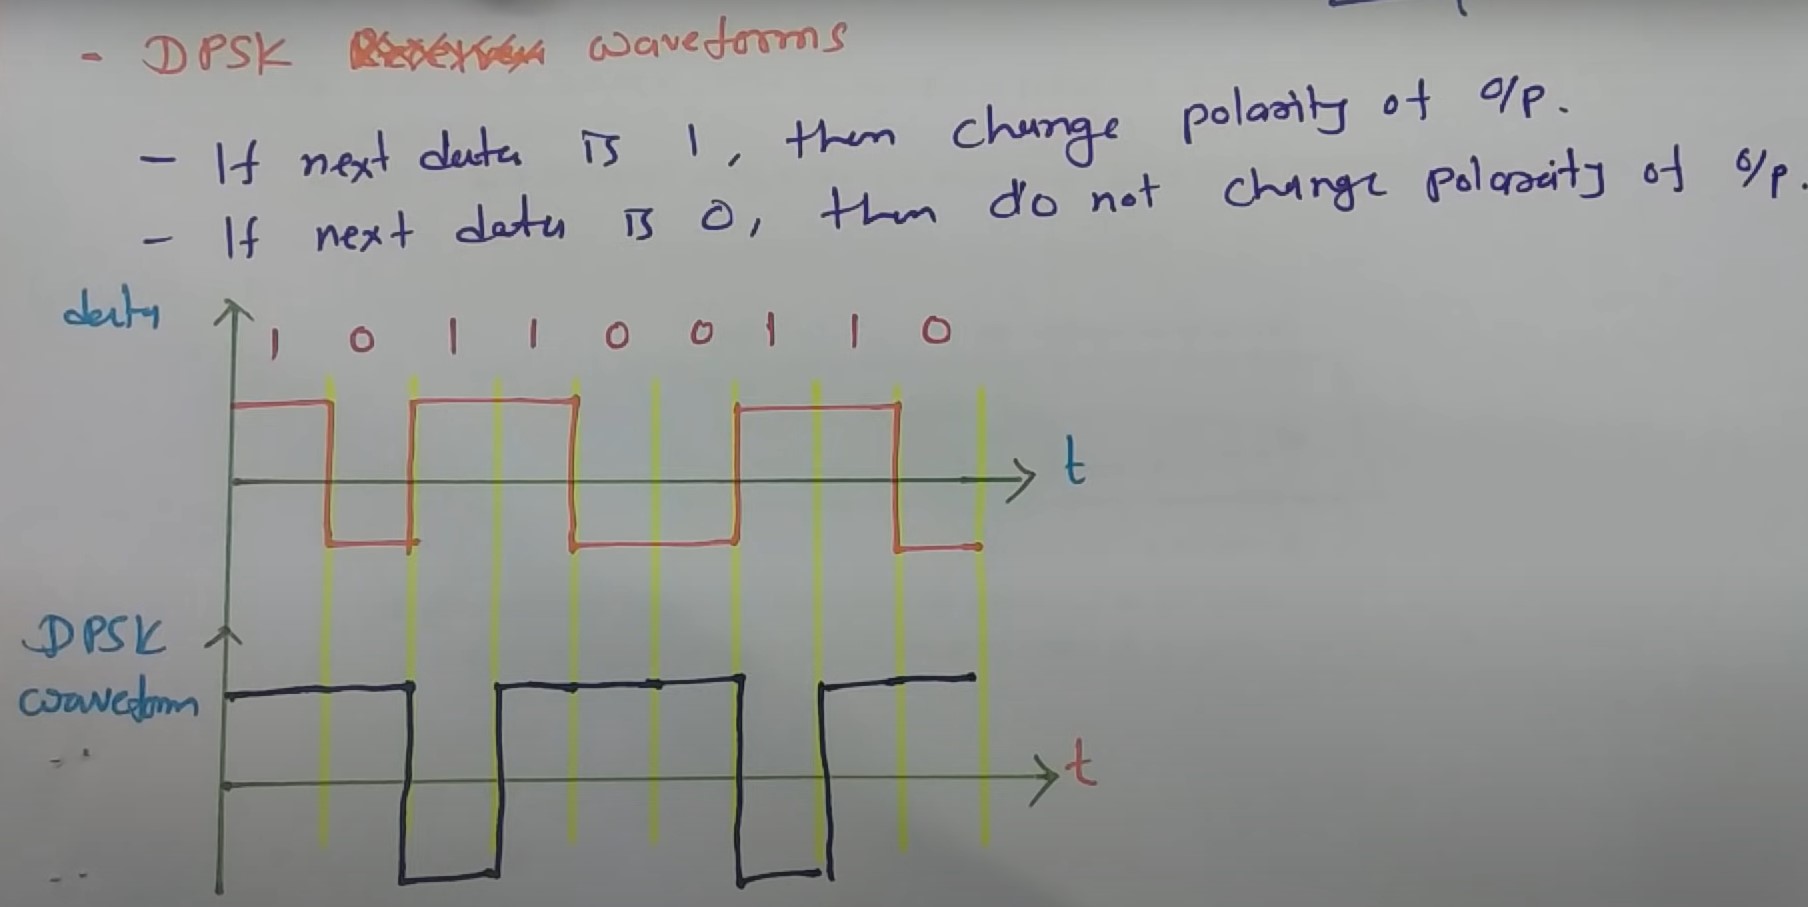 - DPSK waveforms
- If next data is 1, then change polarity of o/p.
- If next data is 0, then do not change polarity of o/p.
data 1 0 1 1 0 0 1 1 0
t
DPSK
waveform
t